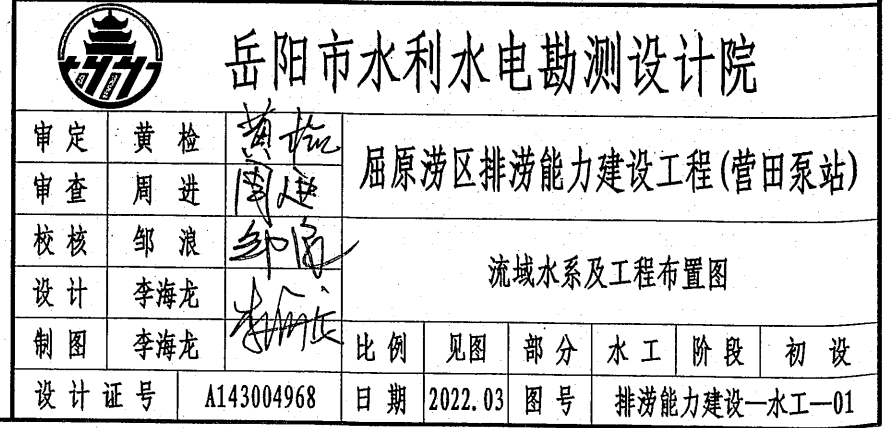 岳阳市水利水电勘测设计院
审定 黄检 黄检 屈原涝区排涝能力建设工程(营田泵站)
审查 周进 周进
校核 邹浪 邹浪 流域水系及工程布置图
设计 李海龙 李海龙
制图 李海龙 比例 见图 部分 水工 阶段 初设
设计证号 A143004968 日期 2022.03 图号 排涝能力建设—水工—01